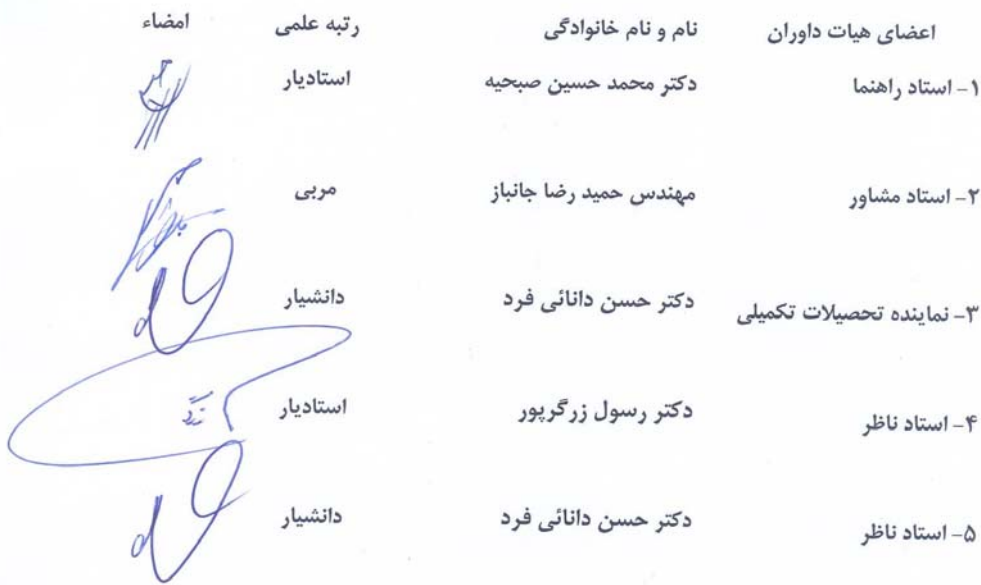 اعضای هیات داوران نام و نام خانوادگی رتبه علمی امضاء
۱- استاد راهنما دکتر محمد حسین صبحیه استادیار
۲- استاد مشاور مهندس حمید رضا جانباز مربی
۳- نماینده تحصیلات تکمیلی دکتر حسن دانائی فرد دانشیار
۴- استاد ناظر دکتر رسول زرگرپور استادیار
۵- استاد ناظر دکتر حسن دانائی فرد دانشیار